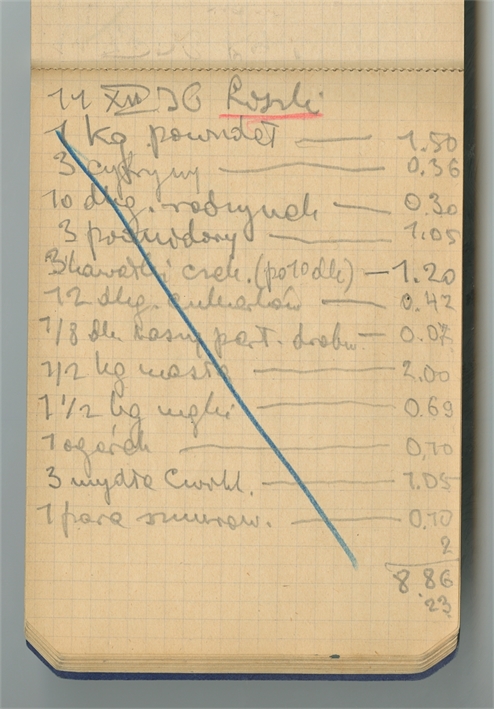 11 XII 36 Roszki
1 kg powideł 1.50
3 cytryny 0.36
10 dkg. rodzynek 0.30
3 pomidory 1.05
3 kawałki czek. (po 10 dk) 1.20
12 dkg. cukierków 0.42
1/8 dk kaszy perł. drobn 0.07
1/2 kg masła 2.00
1 1/2 kg mąki 0.69
1 ogórek 0,10
3 mydła 1.05
1 para sznurow. 0.10
2
8.86
23